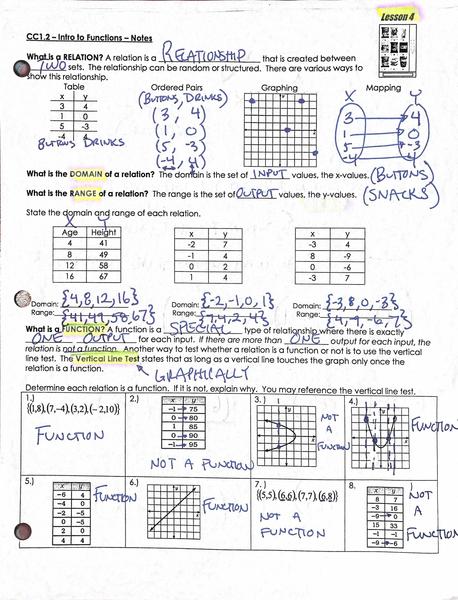 Lesson 4
CC1.2 – Intro to Functions – Notes
What is a RELATION? A relation is a RELATIONSHIP that is created between
TWO sets. The relationship can be random or structured. There are various ways to
show this relationship.
Table Ordered Pairs Graphing Mapping
x y
3 4
1 0
5 -3
-4 4
BUTTONS DRINKS
(BUTTONS, DRINKS)
(3, 4)
(1, 0)
(5, -3)
(-4, 4)
X Y
3 4
1 0
5 -3
-4
What is the DOMAIN of a relation? The domain is the set of INPUT values, the x-values. (BUTTONS)
What is the RANGE of a relation? The range is the set of OUTPUT values, the y-values. (SNACKS)
State the domain and range of each relation.
X Y
Age Height
4 41
8 49
12 58
16 67
x y
-2 7
-1 4
0 2
1 4
x y
-3 4
8 -9
0 -6
-3 7
Domain: {4,8,12,16} Domain: {-2,-1,0,1} Domain: {-3,8,0,-3}
Range: {41,49,58,67} Range: {7,4,2,4} Range: {4,-9,-6,7}
What is a FUNCTION? A function is a SPECIAL type of relationship where there is exactly
ONE OUTPUT for each input. If there are more than ONE output for each input, the
relation is not a function. Another way to test whether a relation is a function or not is to use the vertical
line test. The Vertical Line Test states that as long as a vertical line touches the graph only once the
relation is a function.
GRAPHICALLY
Determine each relation is a function. If it is not, explain why. You may reference the vertical line test.
1.)
{(1,8),(7,-4),(3,2),(-2,10)}
FUNCTION
2.)
x y
-1 75
0 80
1 85
0 90
-1 95
NOT A FUNCTION
3.)
NOT
A
FUNCTION
4.)
FUNCTION
5.)
x y
-6 4
-4 0
-2 -5
0 -5
2 0
4 4
FUNCTION
6.)
FUNCTION
7.)
{(5,5),(6,6),(7,7),(6,8)}
NOT A
FUNCTION
8.
x y
8 7
-3 16
-9 0
15 33
-1 -1
-9 -6
NOT
A
FUNCTION